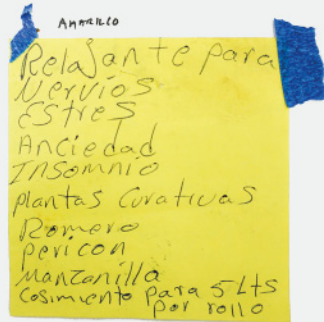 AMARILLO
Relajante para
Nervios
Estres
Anciedad
Insomnio
plantas Curativas
Romero
pericon
Manzanilla
Cosimiento para 5 Lts
por rollo